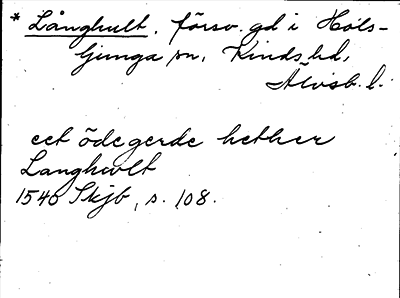 * Långhult, försv. gd i Hols-
ljunga sn, Kinds hd,
Älvsb. l.
eet öde gerde hether
Langhwlt
1540 Skjb, s. 108.